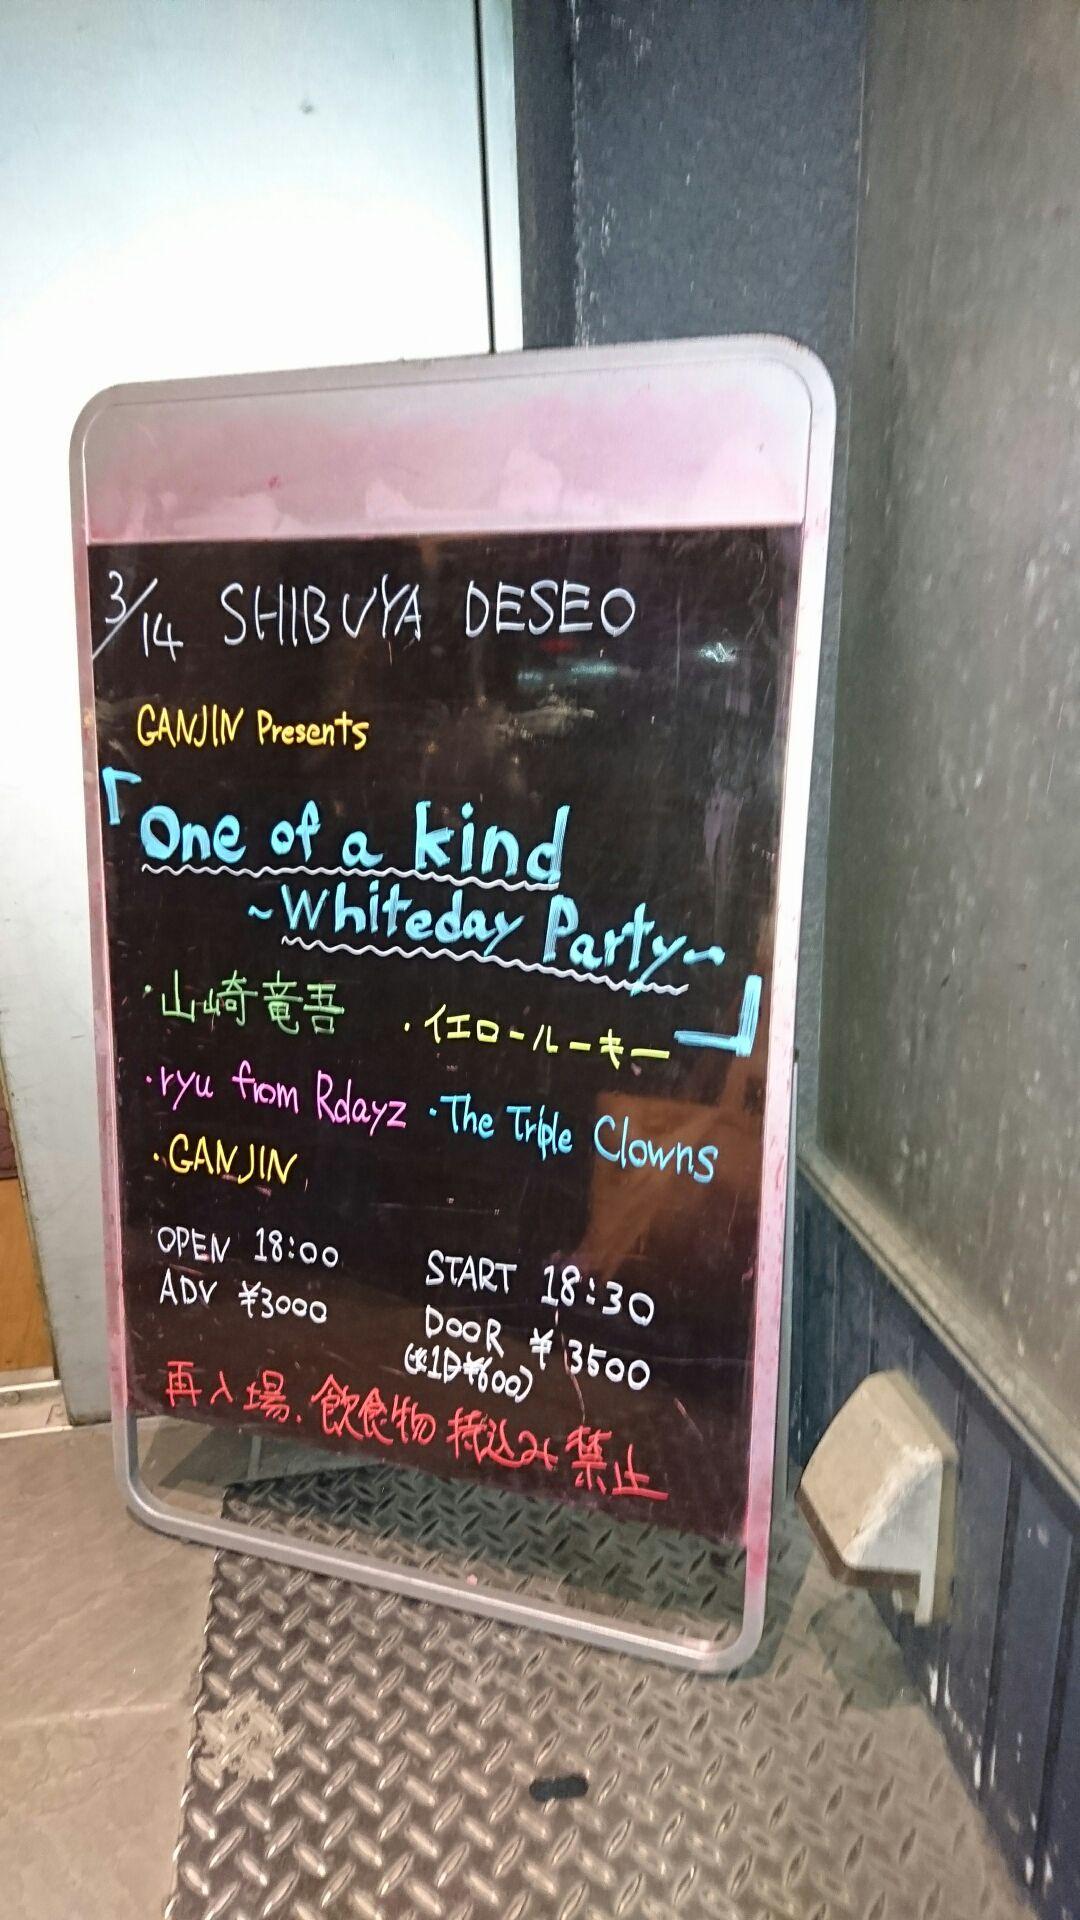 3/14 SHIBUYA DESEO
GANJIN Presents
「One of a kind
~Whiteday Party~」
・山崎竜吾 ・イエロールーキー
・ryu from Rdayz ・The Triple Clowns
・GANJIN
OPEN 18:00 START 18:30
ADV ¥3000 DOOR ¥3500
(共1D¥600)
再入場、飲食物持込み禁止